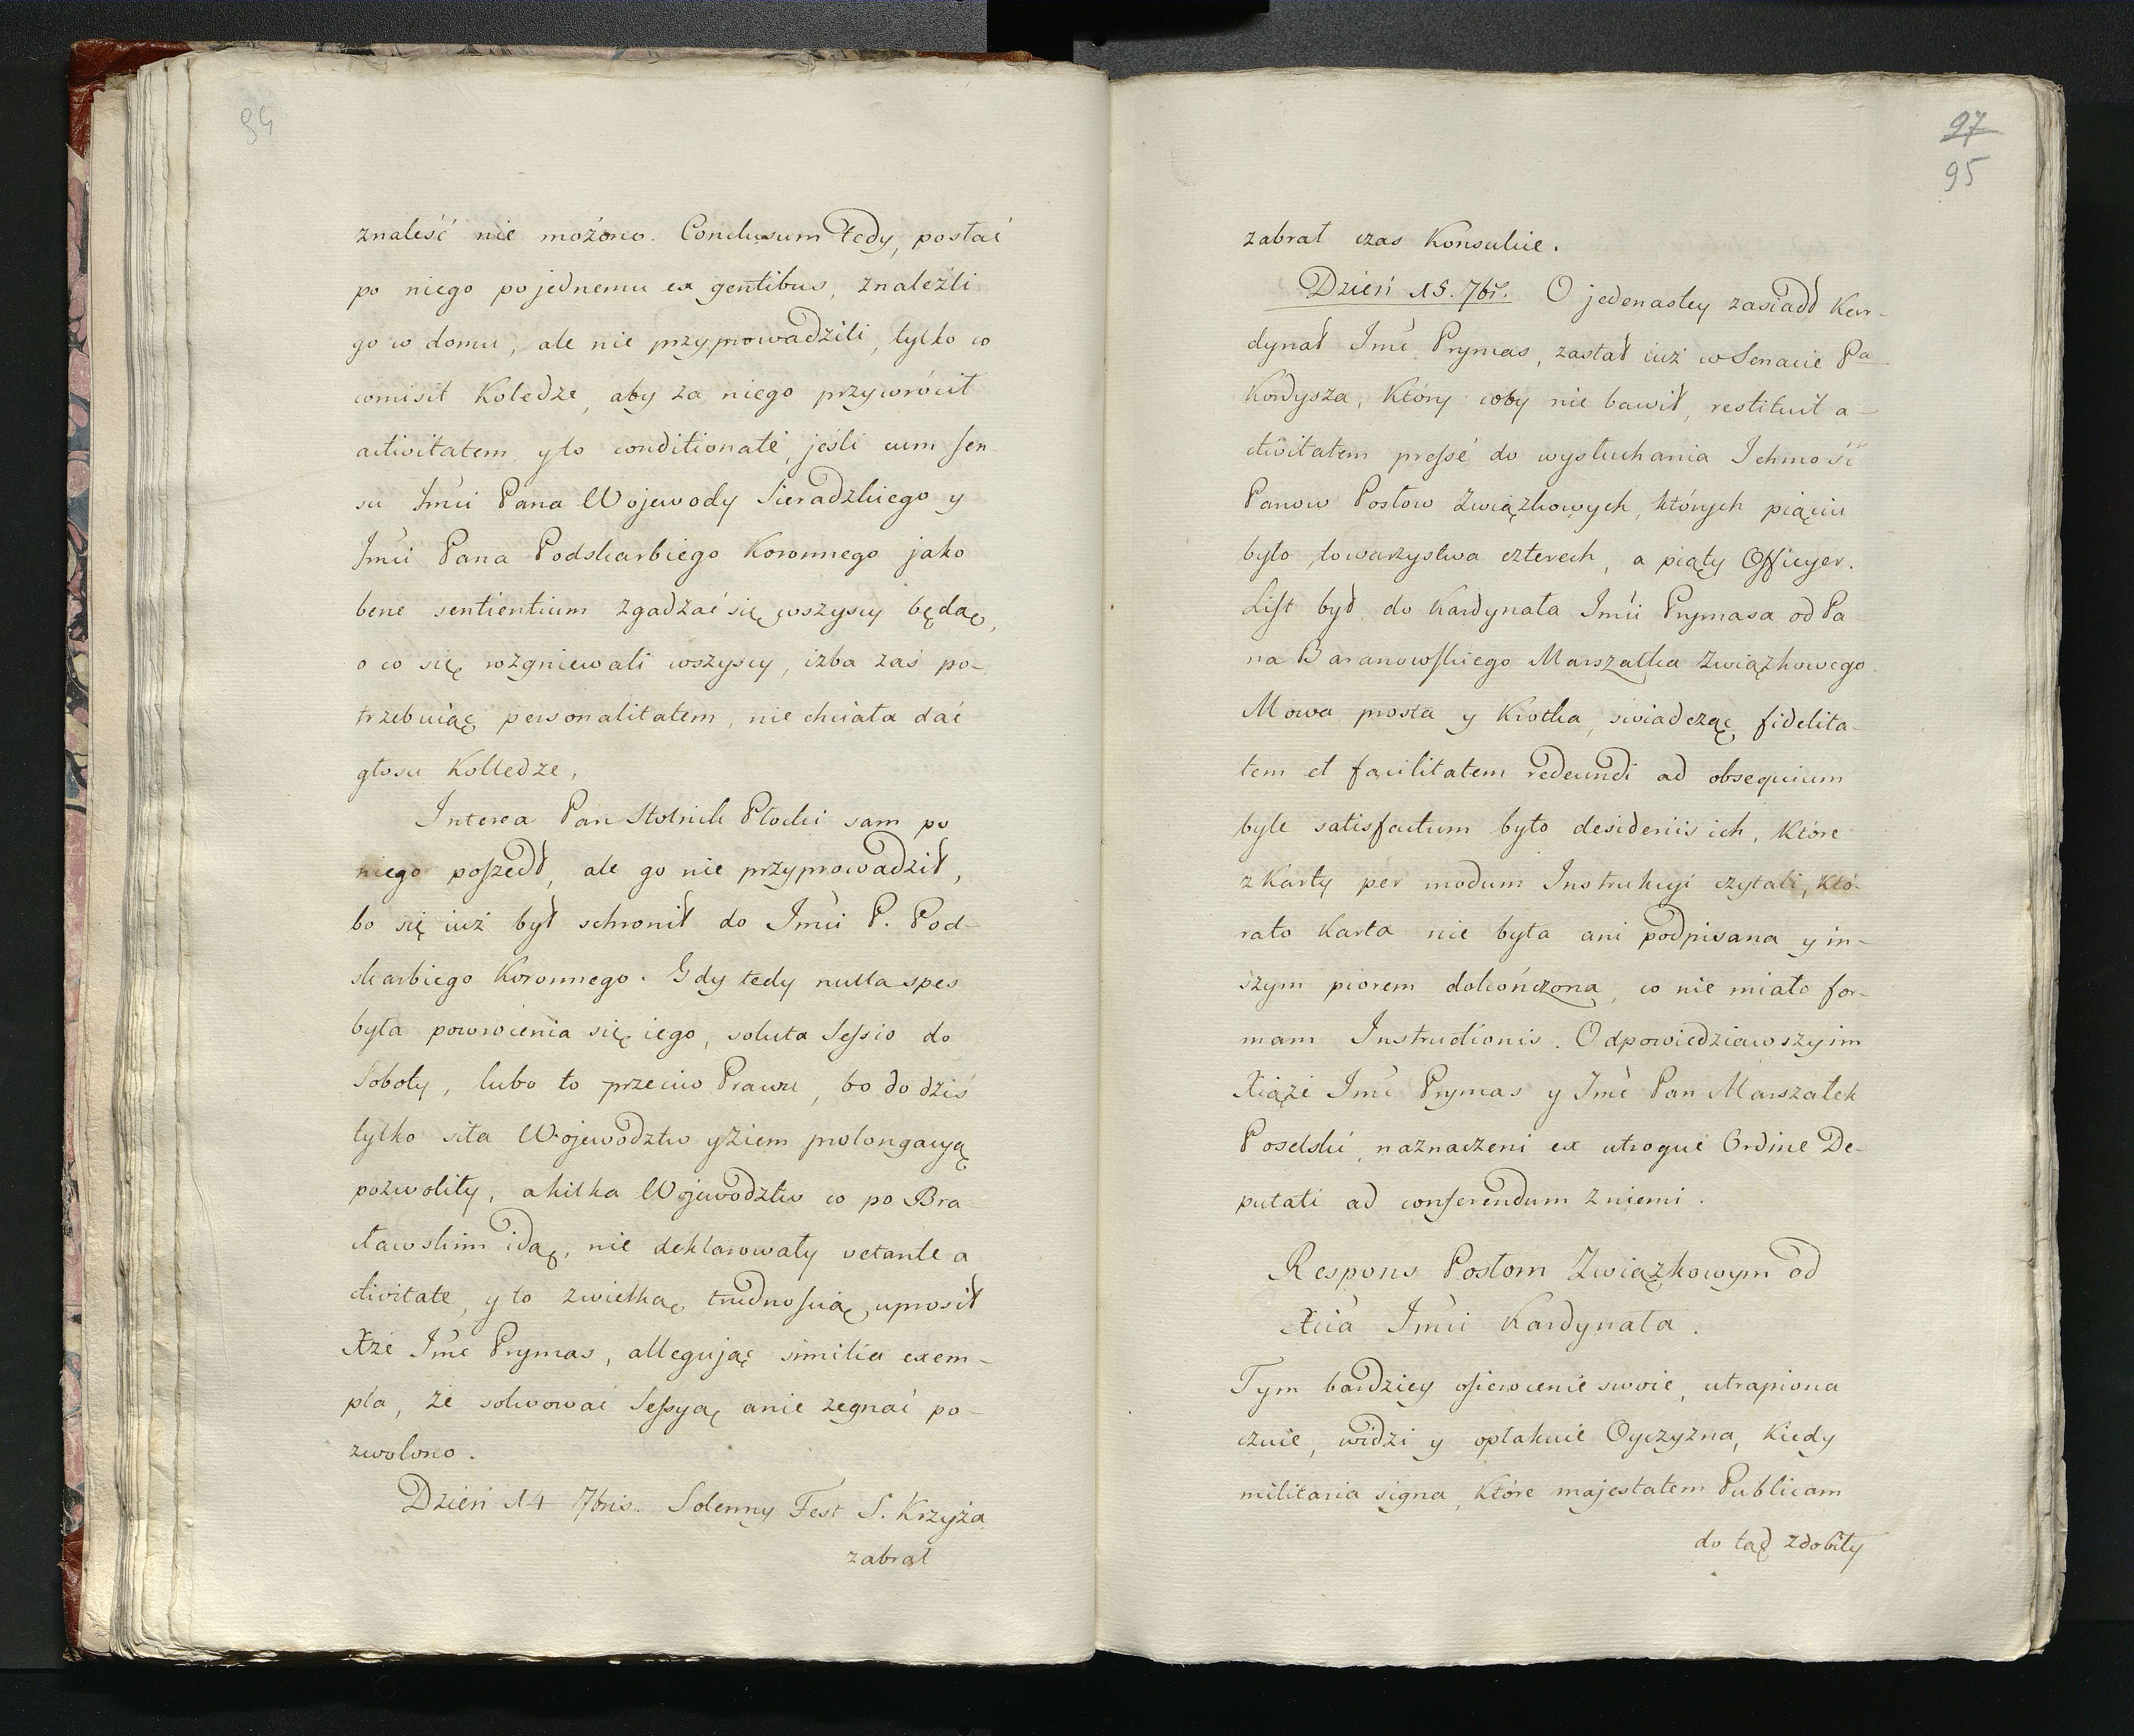 94
znaleść nie możono. Conclusum tedy, posłać
po niego pojednemu ex gentibus, znaleźli
go w domu, ale nie przyprowadzili, tylko co
comisit Koledze, aby za niego przywrócił
activitatem, y to conditionaté, jeśli cum sen
su Jmci Pana Wojewody Sieradzkiego y
Jmci Pana Podskarbiego Koronnego jako
bene sentientium zgadzać się wszyscy będą,
o co się rozgniewali wszyscy, izba zaś po-
trzebuiąc personalitatem, nie chciała dać
głosu Kolledze,
Interea Pan Stolnik Płocki sam po
niego poszedł, ale go nie przyprowadził,
bo się iuż był schronił do Jmci P. Pod-
skarbiego Koronnego. Gdy tedy nulla spes
była powrócenia się iego, soluta Sessio do
Soboty, lubo to przeciw Prawu, bo do dziś
tylko siła Województw y Ziem prolongacyą
pozwoliły, a kilka Województw co po Bra
cławskim idą, nie deklarowały vetante a
ctivitate, y to z wielką trudnością uprosił
Xże Jmć Prymas, allegując similia exem-
pla, że solwować Sessyą a nie żegnać po-
zwolono.
Dzień 14 7bris. Solenny Fest S. Krzyża
zabrał
97
95
zabrał czas Konsulcie.
Dzień 15. 7br. O jedenastey zasiadł Kar-
dynał Jmć Prymas, zastał iuż w Senacie Pa
Kordysza, Który coby nie bawił, restituit a-
ctivitatem pressé do wysłuchania Ichmość
Panow Posłow Związkowych, których piąciu
było, towarzystwa czterech, a piąty Officyer.
List był do Kardynała Jmci Prymasa od Pa
na Baranowskiego Marszałka Związkowego.
Mowa prosta y Krotka, świadcząc fidelita-
tem et facilitatem redeundi ad obsequium
byle satisfactum było desideriis ich, Które
z Karty per modum Instrukcyi czytali, Któ-
rato Karta nie była ani podpisana y in-
szym piorem dokończona, co nie miało for-
mam Instructionis. Odpowiedziawszy im
Xiąże Jmć Prymas y Jmć Pan Marszałek
Poselski, naznaczeni ex utroque Ordine De-
putati ad conferendum z niemi.
Respons Posłom Związkowym od
Xcia Jmci Kardynała.
Tym bardziey osierocenie swoie, utrapiona
czuie, widzi y opłakuie Oyczyzna, Kiedy
militaria signa, Które majestatem Publicam
do tąd zdobiły